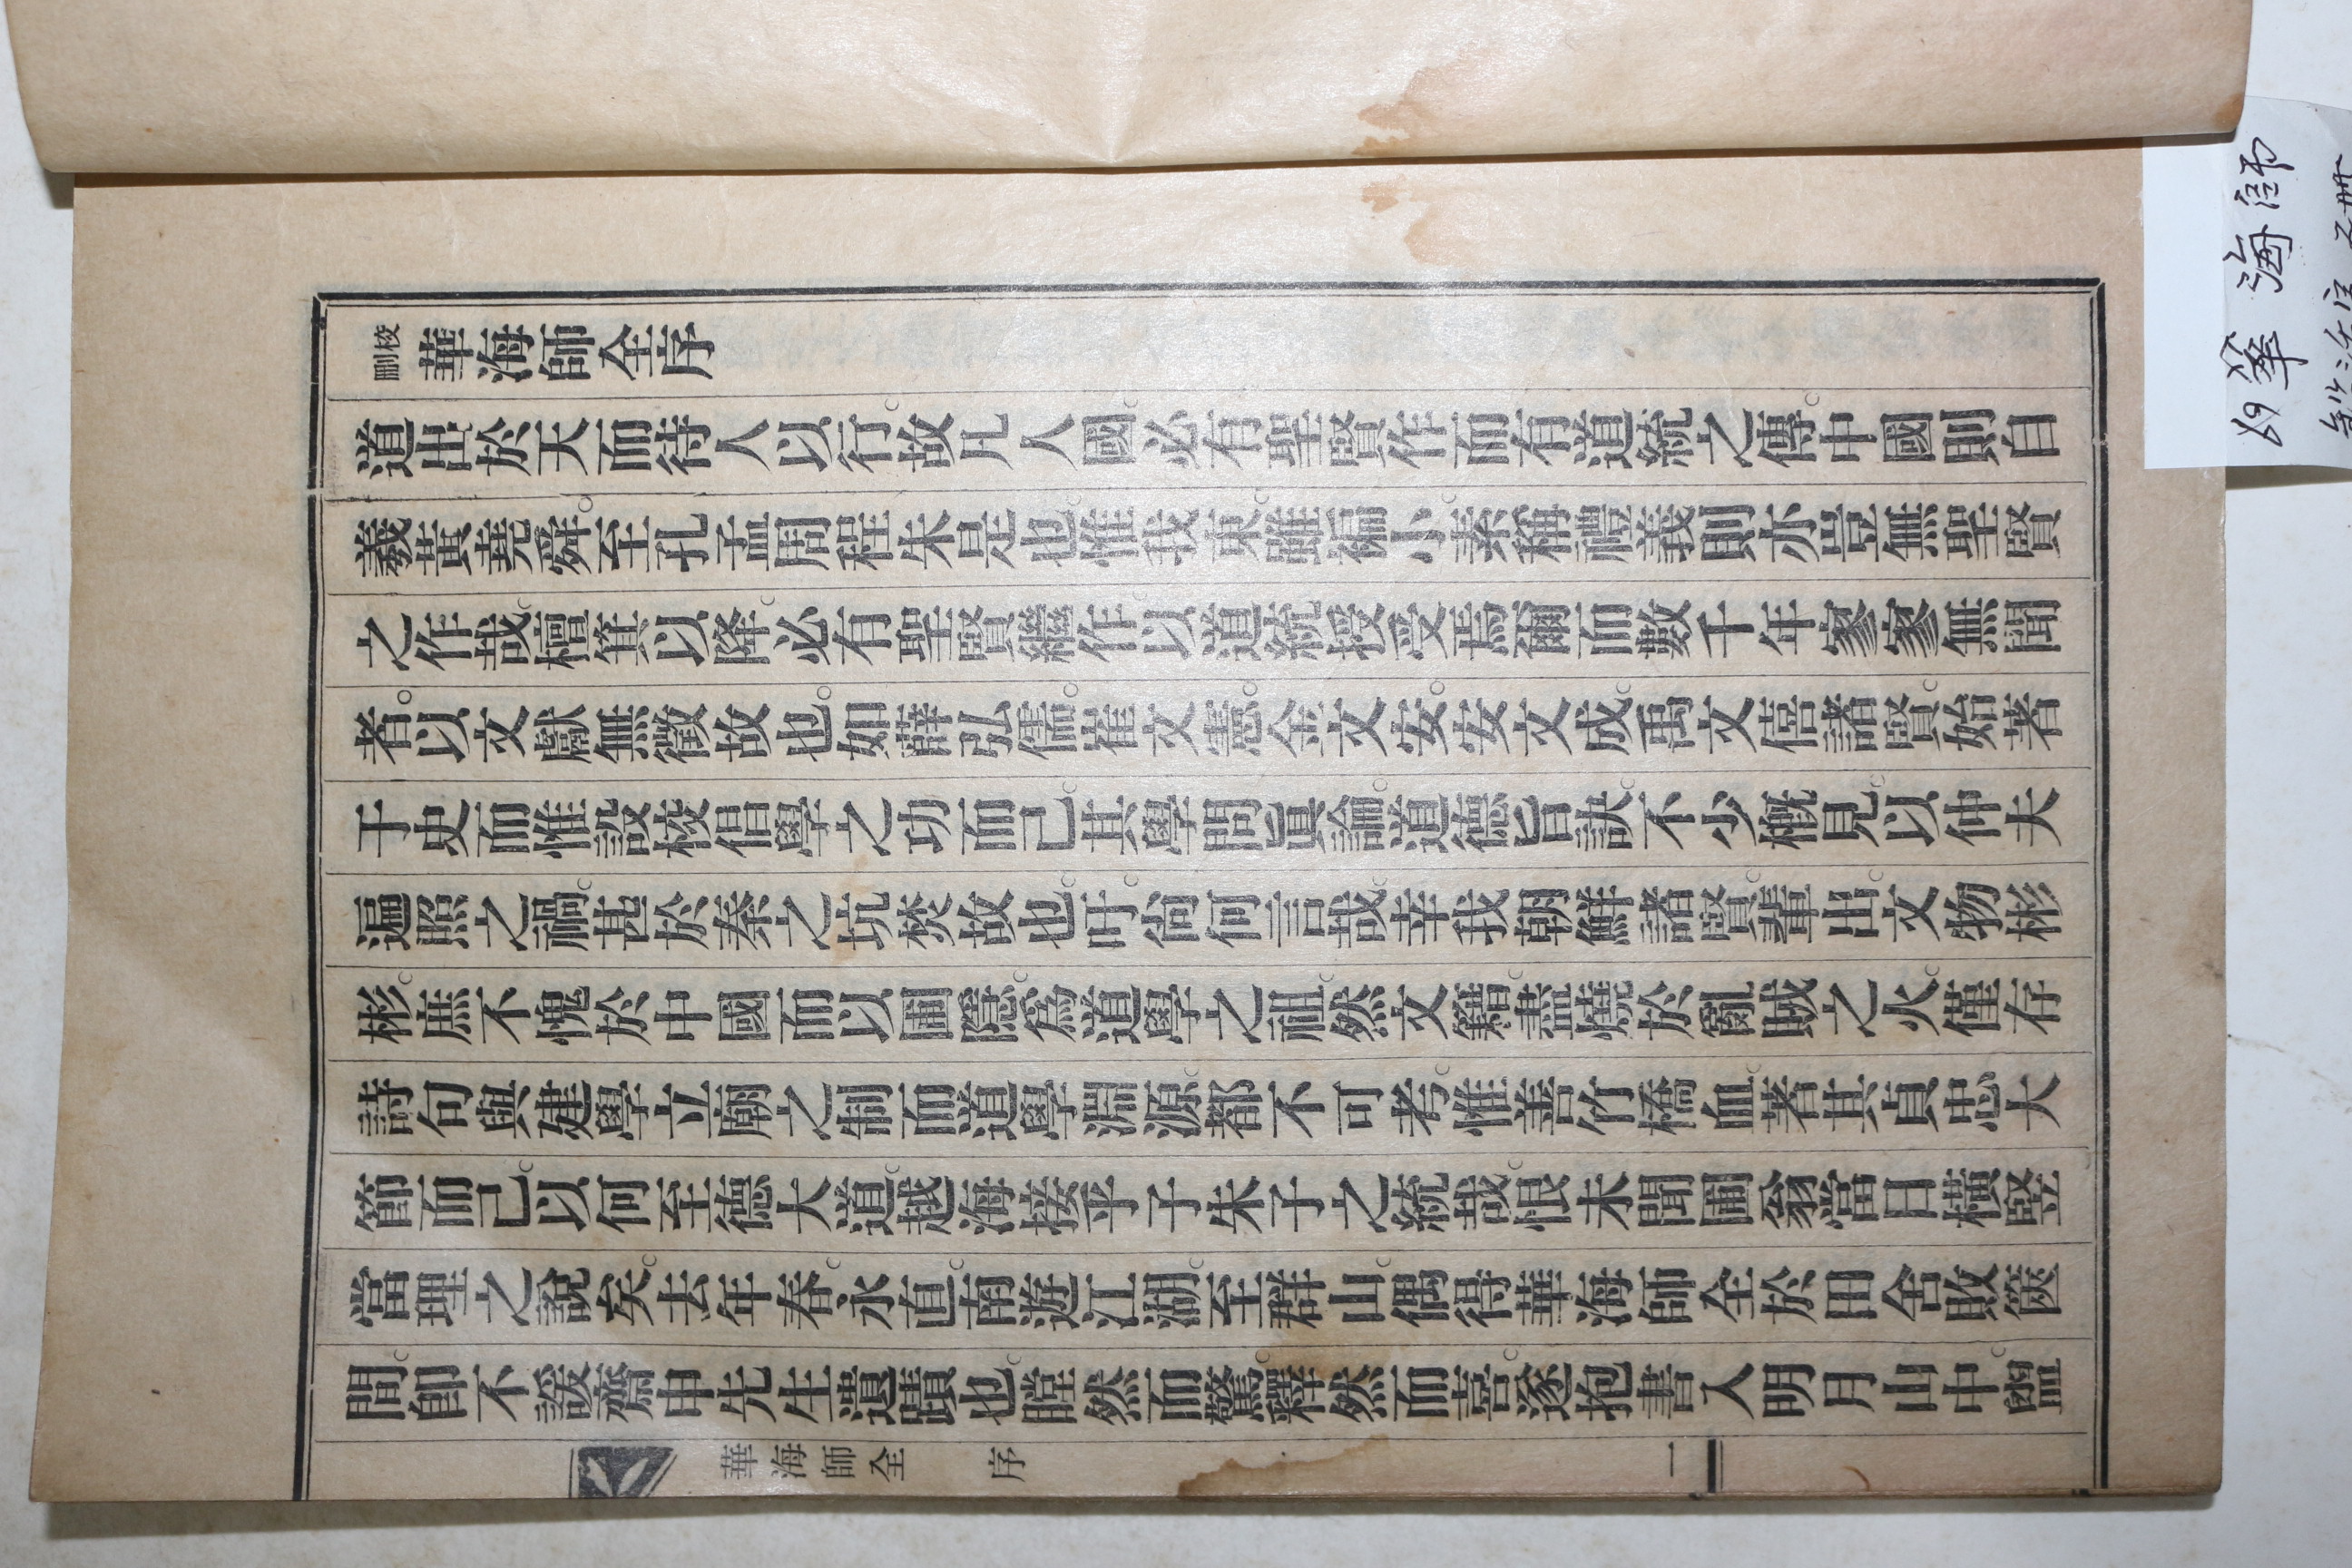 校刪華海師全序
道出於天而待人以行。故凡人國。必有聖賢作而有道統之傳。中國則自
羲黃堯舜。至孔孟周程朱是也。惟我東。雖褊小。素稱禮義則亦豈無聖賢
之作哉。檀箕以降。必有聖賢繼作以道統授受焉爾而數千年寥寥無聞
者。以文獻無徵故也。如薛弘儒。崔文憲。金文安。安文成。禹文僖諸賢。始著
于史而惟設校倡學之功而己。其學問眞論。道德旨訣。不少槪見。以仲夫
遍照之禍。甚於秦之坑焚故也。吁。尙何言哉。幸我朝鮮諸賢。輩出。文物彬
彬。庶不愧於中國而以圃隱。爲道學之祖。然文籍。盡燒於亂賊之火。僅存
詩句與建學立廟之制而道學淵源。都不可考。惟善竹橋血。著其貞忠大
節而己。以何至德大道。越海接乎子朱子之統哉。恨未聞圃翁當日橫竪
當理之說矣。去年春。永直。南遊江湖。至群山。偶得華海師全於田舍敗篋
間。卽不諼齋申先生遺蹟也。瞠然而驚。釋然而喜。遂抱書入明月山中。盥
華海師全 序 一
69 華海師